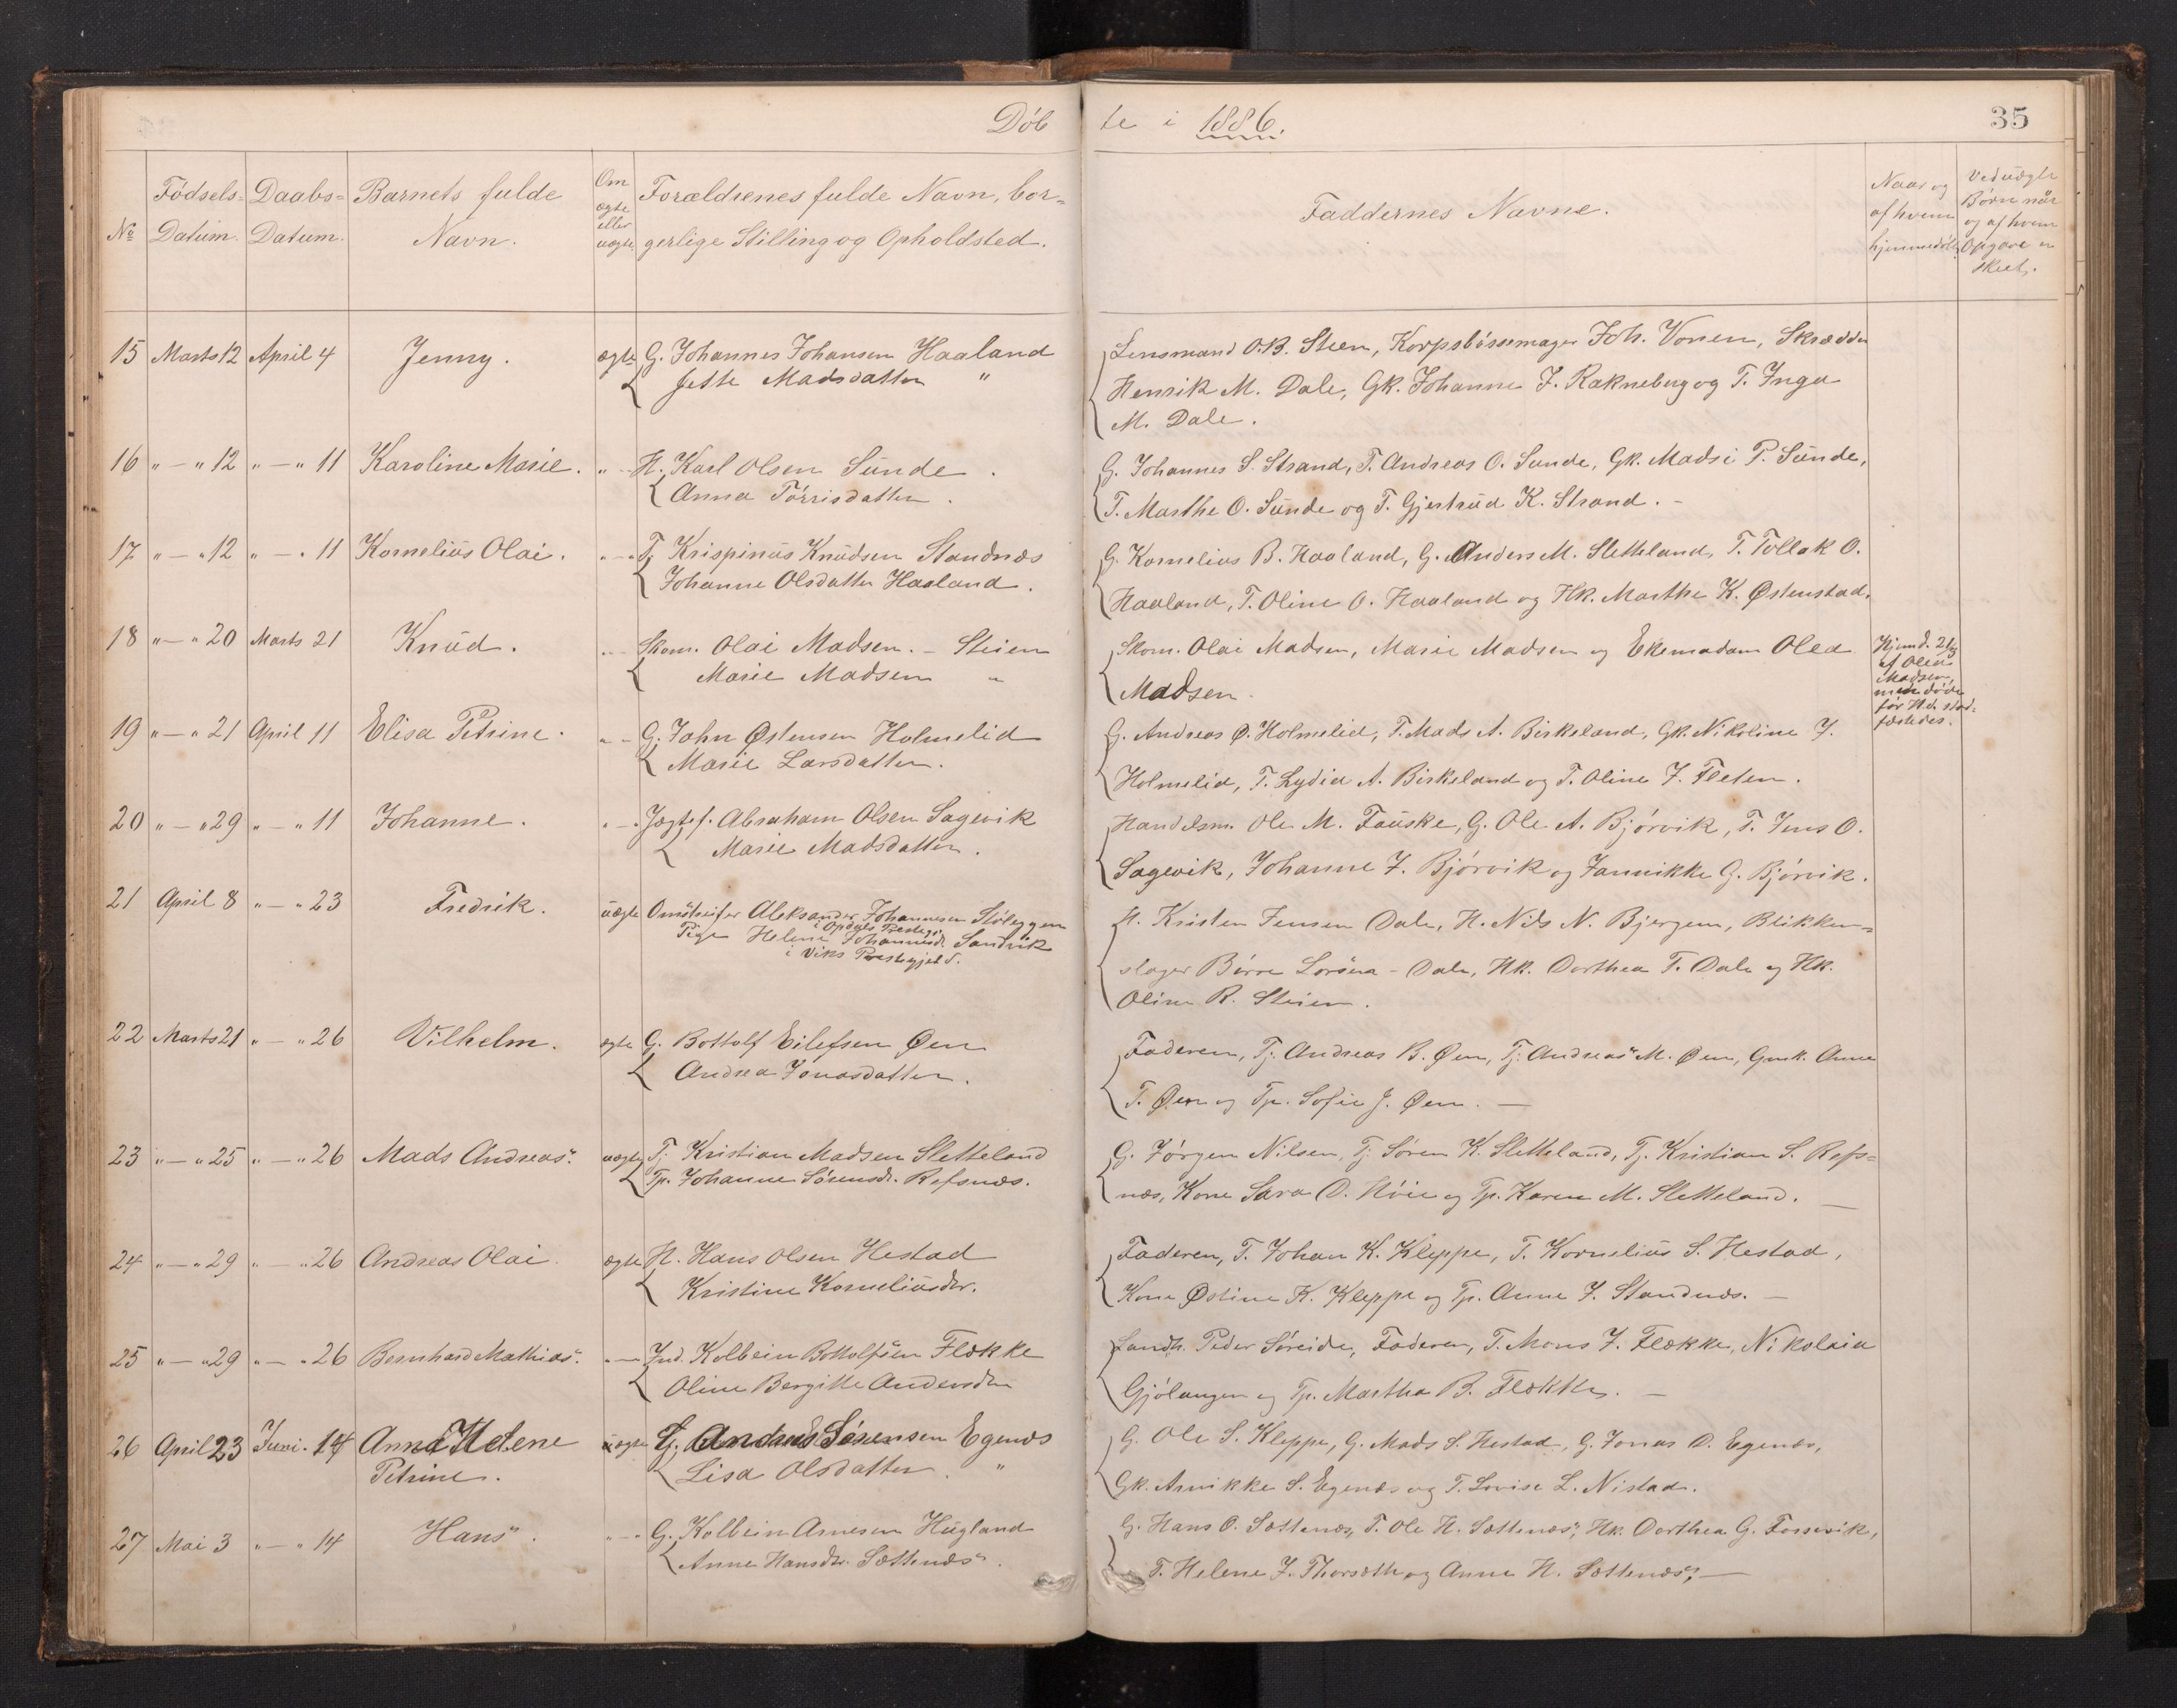 Döbte i 1886.
35
No
Fødsels-Datum.
Daabs-Datum.
Barnets fulde Navn.
Om ægte eller uægte
Forældrenes fulde Navn, borgerlige Stilling og Opholdsted.
Faddernes Navne.
Naar og af hvem hjemmedöbt
Ved uægte Børn når og af hvem Opgave er skeet.
15 Marts 12 April 4 Jenny. ægte G. Johannes Johansen Haaland
Jette Madsdatter "
Lensmand O.B. Steen, Korpsbössemager Joh. Vonen, Skrædder
Henrik M. Dale, Gk. Johanne J. Rakneberg og T. Inga
M. Dale.
16 " - " 12 " - " 11 Karoline Marie. " - H. Karl Olsen Sunde.
Anna Törrisdatter.
G. Johannes S. Strand, T. Andreas O. Sunde, Gk. Madsi P. Sunde,
T. Marthe O. Sunde og T. Gjertrud K. Strand. -
17 " - " 12 " - " 11 Kornelius Olai. " - " Tj. Krispinus Knudsen Standnæs
Johanne Olsdatter Haaland.
G. Kornelius B. Haaland, G. Anders M. Sletteland, T. Tollak O.
Haaland, T. Oline O. Haaland og Hk. Marthe K. Østenstad.
18 " - " 20 Marts 21 Knud. " - Skom. Olai Madsen. - Steien
Marie Madsen "
Skom. Olai Madsen, Marie Madsen og Ekemadam Olea
Madsen.
Hjemd. 21/3
af Olea
Madsen,
men döde
før H.d. stad-
fæstedes.
19 " - " 21 April 11 Elisa Petrine. " - G. John Østensen Holmelid
Marie Larsdatter.
G. Andreas Ø. Holmelid, T. Mads A. Birkeland, Gk. Nikoline J.
Holmelid, T. Lydia A. Birkeland og T. Oline J. Fleten.
20 " - " 29 " - " 11 Johanne. " - Jægtef. Abraham Olsen Sagevik
Marie Madsdatter.
Handelsm. Ole M. Fauske, G. Ole A. Bjørvik, T. Jens O.
Sagevik, Johanne J. Bjørvik og Jannikke G. Bjørvik.
21 April 8 " - " 23 Fredrik. uægte Omstreifer Aleksander Johannesen
i Opdals Prestegj.
Pige Helene Johannesd. Sandvik
i Viks Prestegjeld.
H. Kristen Jensen Dale, H. Nils N. Bjergem, Blikken-
slager Börre - Dale, Hk. Dorthea T. Dale og Hk.
Oline R. Steien.
22 Marts 21 " - " 26 Vilhelm. ægte G. Bottolf Eilefsen Øen
Andrea Jonasdatter.
Faderen, Tj. Andreas B. Øen, Tj. Andreas M. Øen, Gmk. Anne
T. Øen og Tp. Sofie J. Øen. -
23 " - " 25 " - " 26 Mads Andreas. uægte Tj. Kristian Madsen Sletteland
Tp. Johanne Sörensdr. Refsnæs.
G. Jörgen Nilsen, Tj. Sören K. Sletteland, Tj. Kristian S. Refs-
næs, Kone Sara D. Höie og Tp. Karen M. Sletteland. -
24 " - " 29 " - " 26 Andreas Olai. ægte H. Hans Olsen Hestad
Kristine Korneliusdr.
Faderen, T. Johan K. Kleppe, T. Kornelius S. Hestad,
Kone Østine K. Kleppe og Tp. Anne J. Standnæs. -
25 " - " 29 " - " 26 Bernhard Mathias. " - Ind. Kolbein Bottolfsen Flekke
Oline Bergitte Andersdtr
Landh. Peder Söreide, Faderen, T. Mons J. Flekke, Nikolaia
Gjölanger og Tp. Martha B. Flekke. -
26 April 23 Juni 14 Anne Helene
Petrine. uægte G. Andreas Sörensen Egenæs
Lisa Olsdatter. "
G. Ole S. Kleppe, G. Mads S. Hestad, G. Jonas D. Egenæs,
Gk. Annikke S. Egenæs og T. Lovise L. Nistad.
27 Mai 3 " - " 14 Hans. " - " G. Kolbein Arnesen Hugland
Anne Hansdtr. Sættenæs.
G. Hans O. Sættenæs, T. Ole H. Sættenæs, Hk. Dorthea G. Fossevik,
T. Helene J. Thorsæth og Anne H. Sættenæs, -